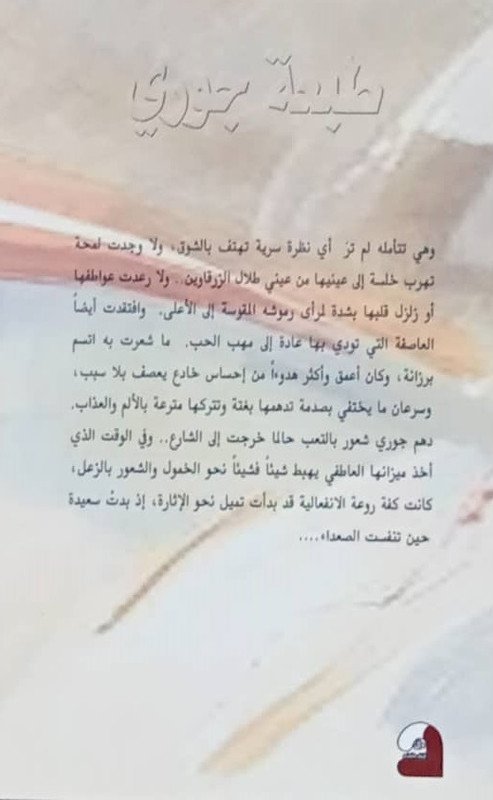 طيبة جوري
وهي تتأمله لم ترَ أي نظرة سرية تهتف بالشوق، ولا وجدت لمحة
تهرب خلسة إلى عينيها من عيني طلال الزرقاوين.. ولا رعدت عواطفها
أو زلزل قلبها بشدة لرأى رموشه المقوسة إلى الأعلى. وافتقدت أيضاً
العاصفة التي تودي بها عادة إلى مهب الحب. ما شعرت به اتسم
برزانة، وكان أعمق وأكثر هدوءاً من إحساس خادع يعصف بلا سبب،
وسرعان ما يختفي بصدمة تدهمها بغتة وتتركها مترعة بالألم والعذاب.
دهم جوري شعور بالتعب حالما خرجت إلى الشارع.. وفي الوقت الذي
أخذ ميزانها العاطفي يهبط شيئاً فشيئاً نحو الخمول والشعور بالزعل،
كانت كفة روعة الانفعالية قد بدأت تميل نحو الإثارة، إذ بدتْ سعيدة
حين تنفست الصعداء....